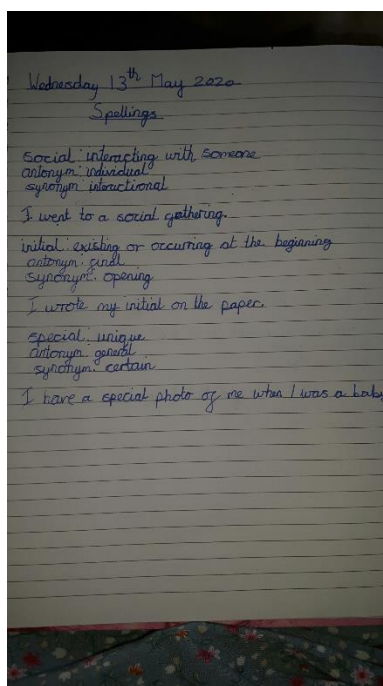 Wednesday 13th May 2020
Spellings
social: interacting with someone
antonym: individual
synonym interactional
I went to a social gathering.
initial: existing or occuring at the beginning
antonym: final
synonym: opening
I wrote my initial on the paper.
special: unique
antonym: general
synonym: certain
I have a special photo of me when I was a baby